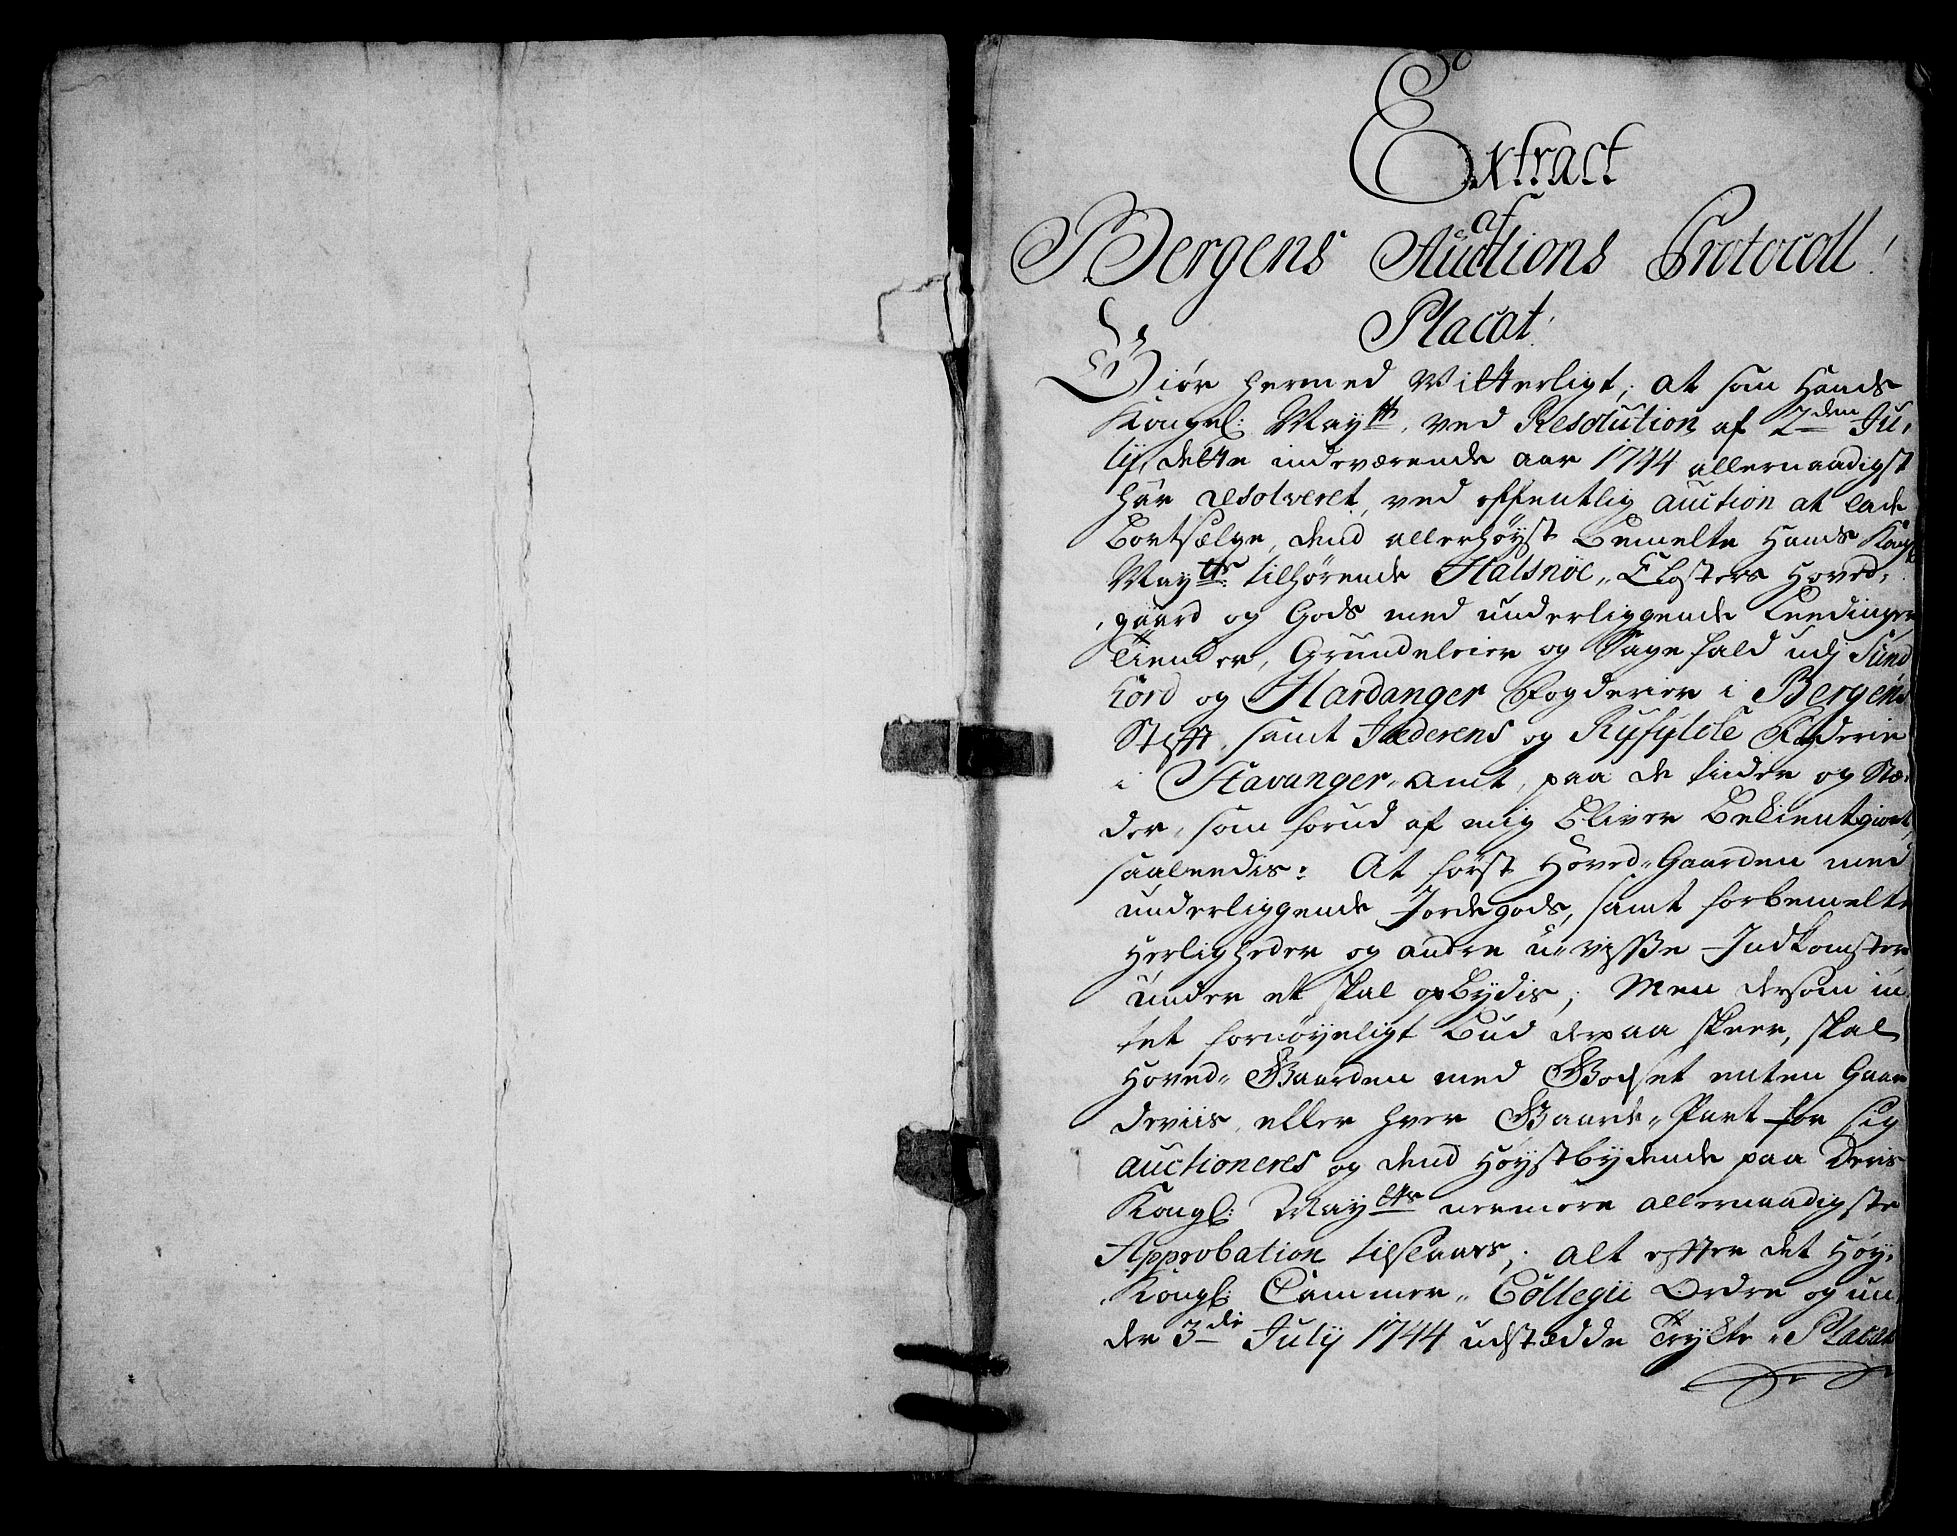 Extract
af
Bergens Auctions Protocoll!
Placat!
Giør hermed Witterligt, at som Hands
Kongel: Maytt, ved Resolution af 2den Ju,
lij, dette indeværende aar 1744 allernaadigst
har resolveret, ved offentlig auction at lade
Bortsælge, dend allerhøyst Bemelte Hands Kongl:
Maytts: tilhørende Halsnøe,, Closters Hoved,,
gaard og Gods med underliggende Leedinger
Tiender, Grundeleier og Sagefald udj Sund
hord og Hardanger Fogderier i Bergens
Stifft, samt Jæderens og Ryfylcke Fogderie
i Stavanger,, amt, paa de tider og Stæ,
der, som forud af mig bliver Bekientgiort,
saaledis: At først Hoved,, Gaarden med
underliggende Jordegods, samt forbemelte
Herligheder og andre u,, visse Indkomster
under et skal opbydis; Men dersom in
tet fornøyeligt bud derpaa skeer, skal
Hoved,, Gaarden med Godset enten Gaar
deviis, eller hver Gaard,, Part for sig
auctioneres og dend Høystbydende paa Deris
Kongl: Maytts neermere allernaadigste
Approbation tilslaaes; alt efter det Høy,
Kongl: Cammer,, Collegii Ordre og un,
der 3die July 1744 udstædde Trykte,, Placat